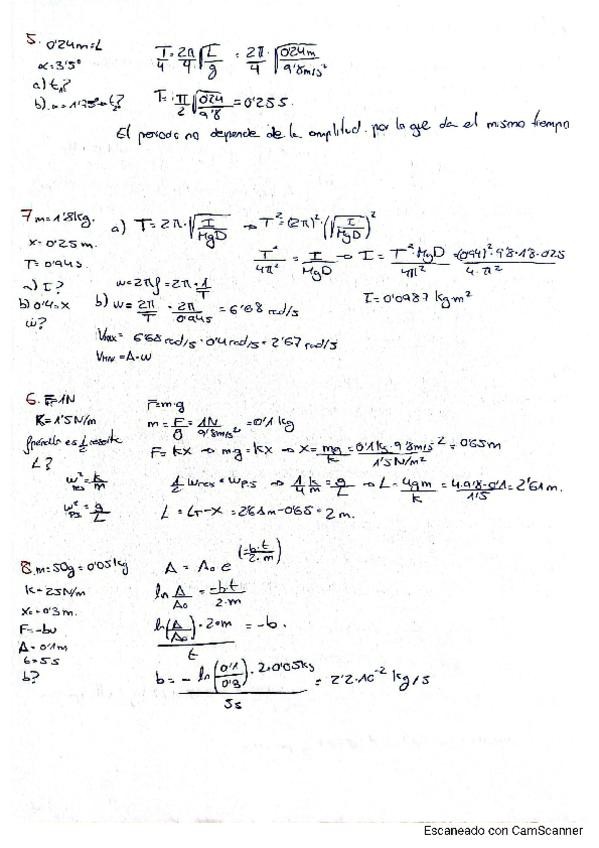 5. 0'24m=L
α=3'5°
a) t₁?
b) α=1'75° t₂?
T/4 = 2π/4 √(L/g) = 2π/4 · √(0'24m/9'8m/s²)
T= π/2 √(0'24/9'8) = 0'25 s.
El periodo no depende de la amplitud. por lo que da el mismo tiempo
7 m=1'8kg.
x=0'25 m.
T=0'94s.
a) I?
b) 0'4=x
w?
a) T=2π·√(I/MgD) → T²=(2π)²·(√(I/MgD))²
T²/4π² = I/MgD → I = T²·MgD/4π² = (0'94)²·9'8·1'8·0'25/4·π²
I=0'0987 kgm²
w=2πf=2π·1/T
b) w=2π/T = 2π/0'94s = 6'68 rad/s
Vmax= 6'68 rad/s·0'4 rad/s=2'67 rad/s
=A·w
6. F=1N
K=1'5N/m
L?
w²=k/m
w²=g/L
F=m·g
m=F/g=1N/9'8m/s²=0'1 kg
F=kx → mg=kx → x=mg/k=0'1kg·9'8m/s²/1'5N/m²=0'65m
1/2 wres=wps → 1/4 k/m=g/L → L=4gm/k=4·9'8·0'1/1'5=2'61m.
L=LT-x=2'61m-0'65=2m.
8. m=50g=0'05kg
k=25N/m
x₀=0'3m.
F=-bv
A=0'1m
t=5s
b?
A = A₀ e^(-b·t/2·m)
ln A/A₀ = -bt/2·m
ln(A/A₀)·2·m/t = -b.
b= -ln(0'1/0'3)·2·0'05kg/5s = 2'2·10⁻² kg/s
Escaneado con CamScanner